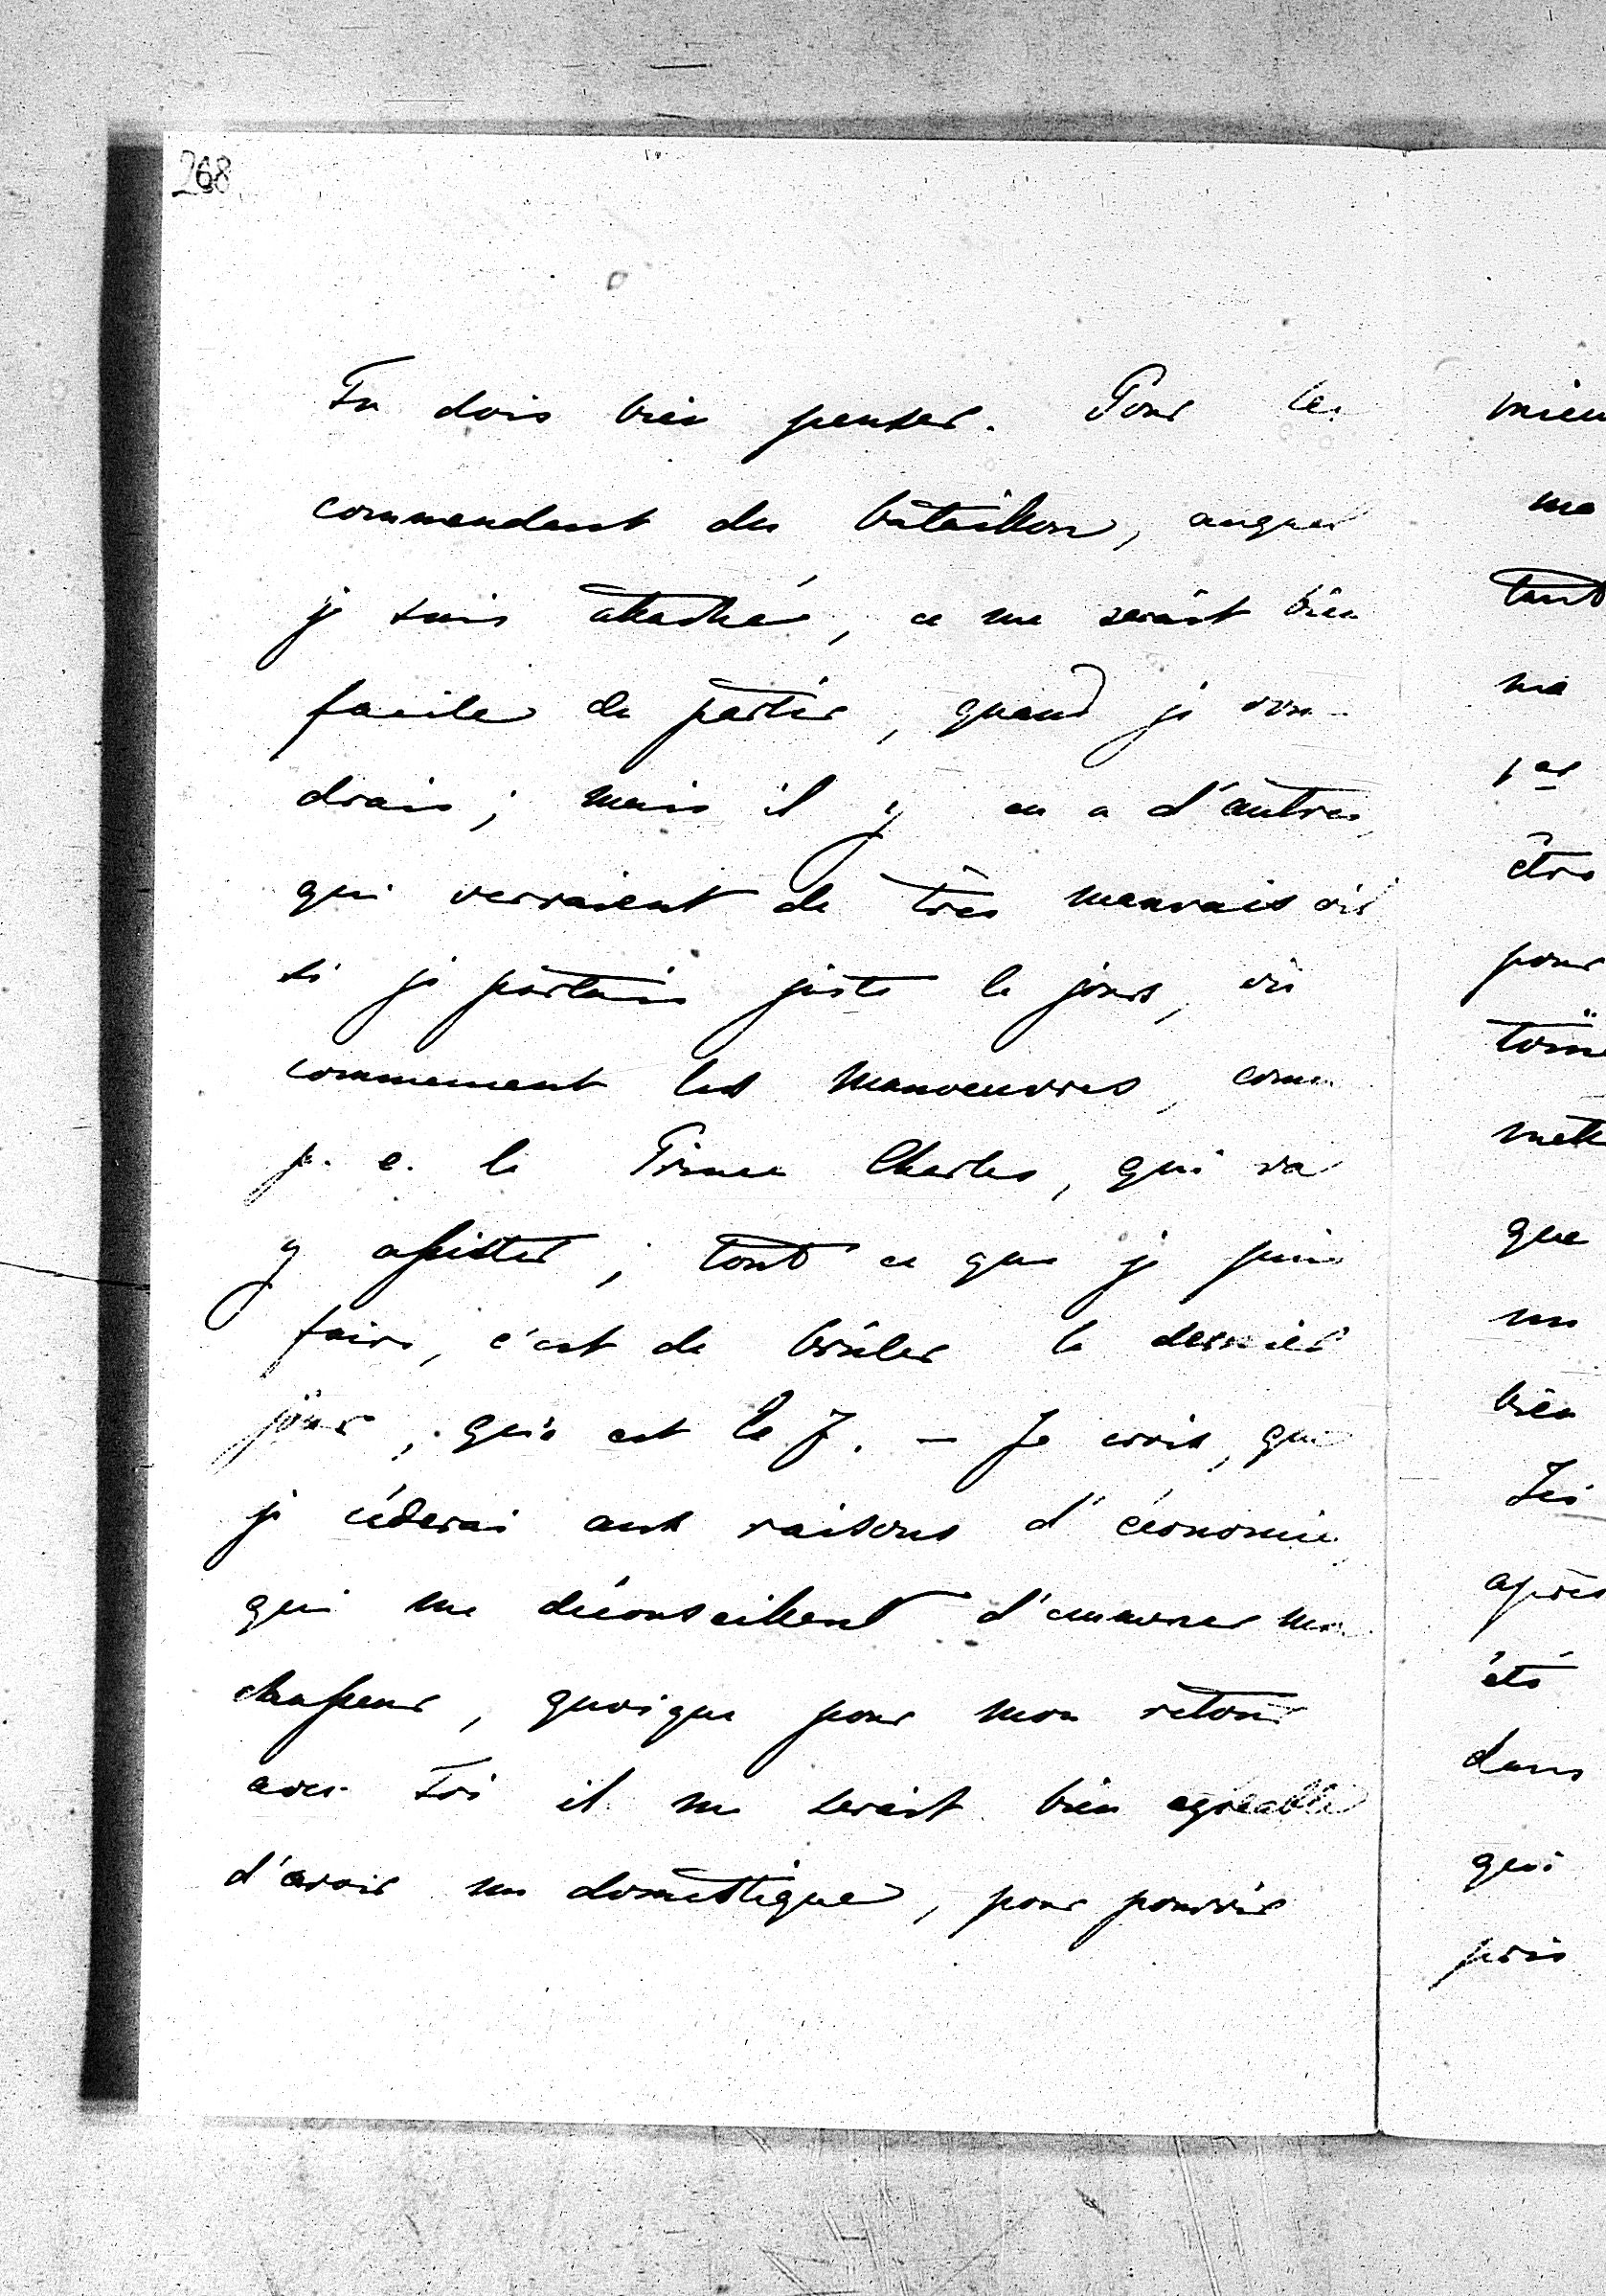 268
Tu dois bien penser. Pour le
commendant du bataillon, auquel
je suis attaché, ce me serait bien
facile de partir, quand je vou-
drais; mais il y en a d'autres,
qui verraient de très mauvais œil
si je partais juste le jour, où
commencent les manoeuvres, comme
p. e. le Prince Charles, qui va
y assister; tout ce que je puis
faire, c'est de brûler le dernier
jour, qui est le 7. — Je crois, que
je céderai aux raisons d'économie,
qui me déconseillent d'emmener mon
chasseur, quoique pour mon retour
avec Toi il me serait bien agréable
d'avoir un domestique, pour pouvoir
mieu
me
tant
ma
1er
être
pour
mett
que
un
bien
après
été
dans
qui
pris